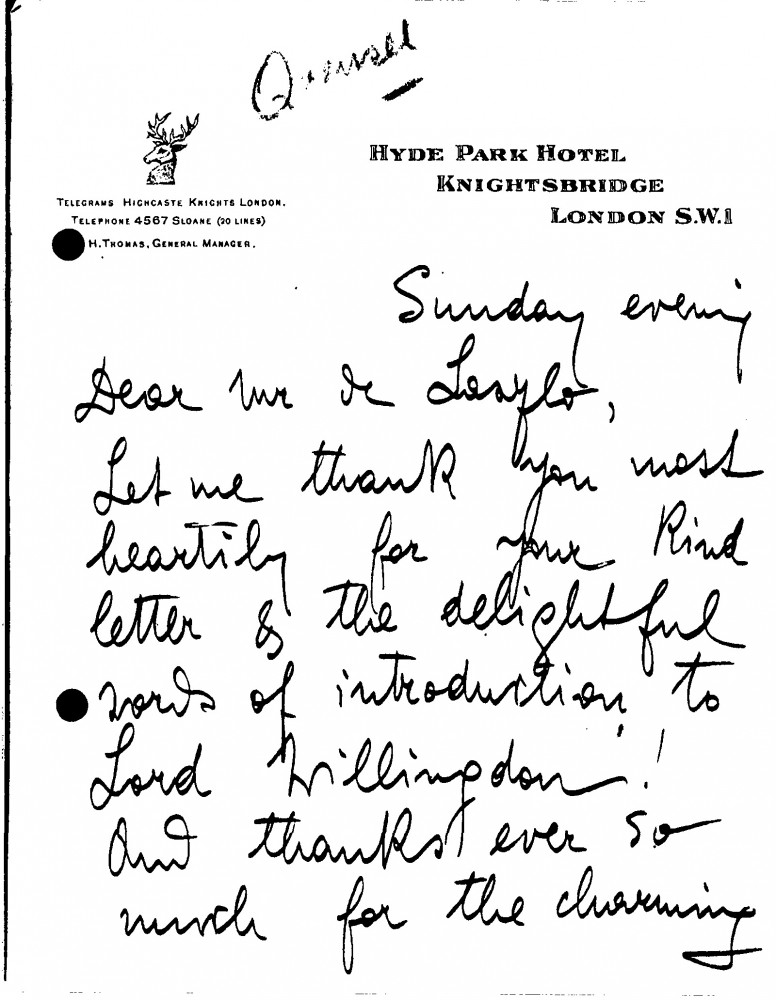 HYDE PARK HOTEL
KNIGHTSBRIDGE
LONDON S.W.1
TELEGRAMS HIGHCASTE KNIGHTS LONDON.
TELEPHONE 4567 SLOANE (20 LINES)
H. THOMAS, GENERAL MANAGER.
Sunday evening
Dear Mr de Laszlo,
Let me thank you most
heartily for your kind
letter & the delightful
words of introduction to
Lord Willingdon!
And thanks ever so
much for the charming